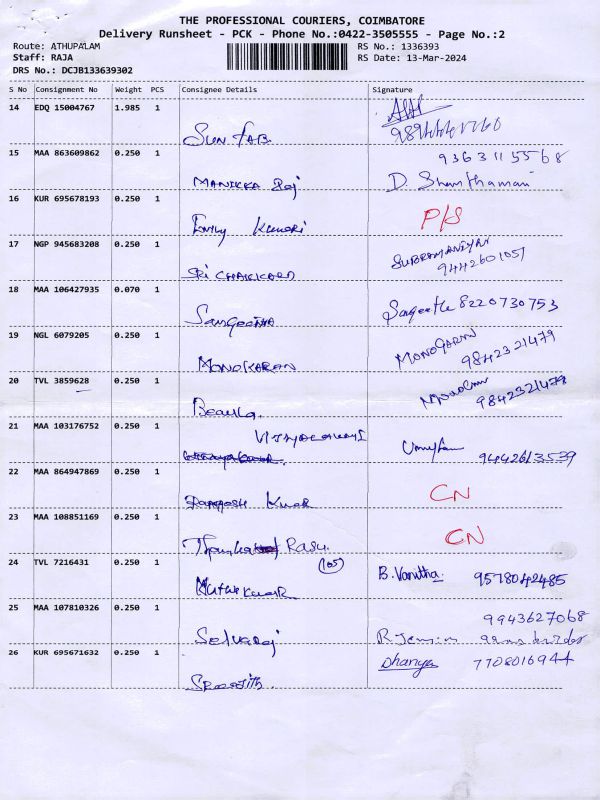 THE PROFESSIONAL COURIERS, COIMBATORE
Delivery Runsheet - PCK - Phone No.:0422-3505555 - Page No.:2
Route: ATHUPALAM
RS No.: 1336393
Staff: RAJA
RS Date: 13-Mar-2024
DRS No.: DCJB133639302
S No Consignment No Weight PCS Consignee Details Signature
14 EDQ 15004767 1.985 1
Sun FAB
15 MAA 863609862 0.250 1 9363115568
MANIKKA Raj D. Shanthamani
16 KUR 695678193 0.250 1 P/S
Kumari
17 NGP 945683208 0.250 1 SUBRAMANIYAN
9442601057
Sri
18 MAA 106427935 0.070 1
Sangeetha 8220730753
19 NGL 6079205 0.250 1 MONOGARAN
MONOKARAN 9842321479
20 TVL 3859628 0.250 1
Beaula. 9842321479
21 MAA 103176752 0.250 1
9442613539
22 MAA 864947869 0.250 1 CN
23 MAA 108851169 0.250 1 CN
Rasu
(105)
24 TVL 7216431 0.250 1 B. Vanitha. 9578042485
25 MAA 107810326 0.250 1 9943627068
Selvaraj
26 KUR 695671632 0.250 1 Dhanya 7708016944